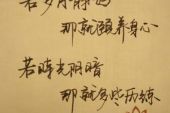 若岁月静好
那就颐养身心
若时光阴暗
那就多些历练